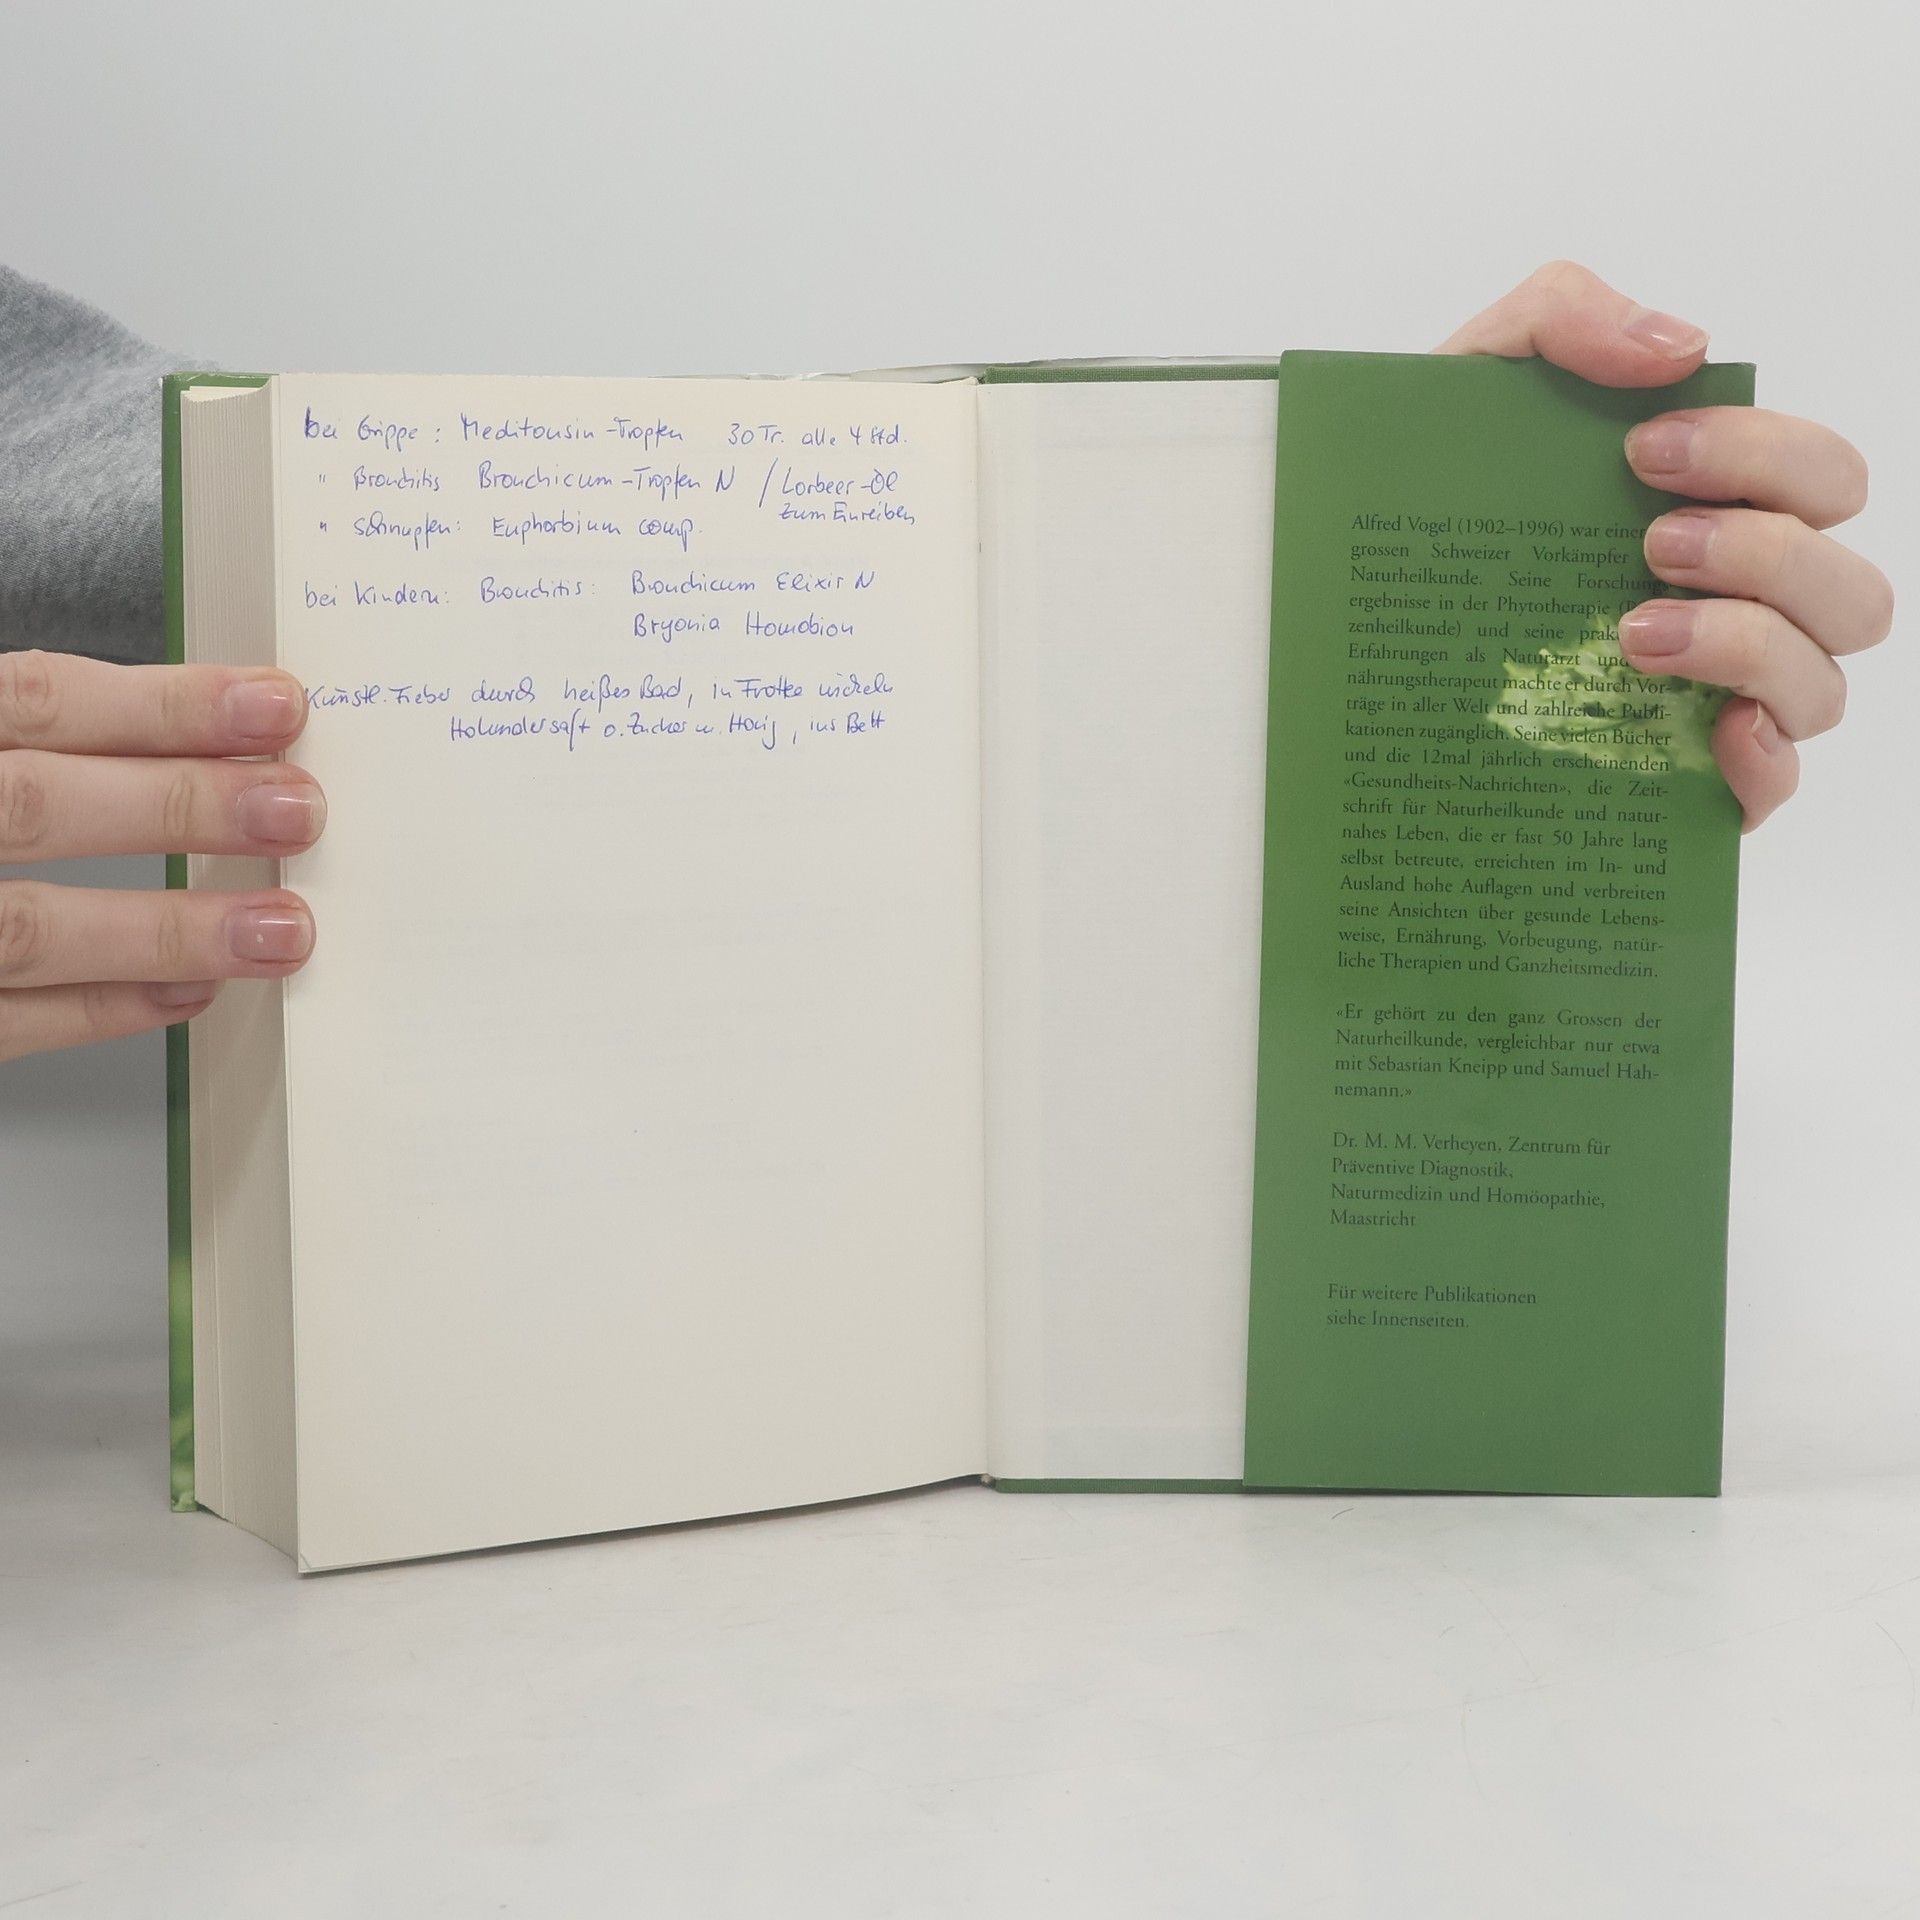 bei Grippe : Meditonsin-Tropfen 30 Tr. alle 4 Std.
" Bronchitis Bronchicum-Tropfen N / Lorbeer-Öl
zum Einreiben
" Schnupfen: Euphorbium comp.
bei Kindern: Bronchitis: Bronchicum Elixir N
Bryonia Homobion
Künstl. Fieber durch heißes Bad, in Frottee wickeln
Holundersaft o. Zucker m. Honig, ins Bett
Alfred Vogel (1902–1996) war einer
grossen Schweizer Vorkämpfer
Naturheilkunde. Seine Forschungs-
ergebnisse in der Phytotherapie
zenheilkunde) und seine
Erfahrungen als Naturarzt und
nährungstherapeut machte er durch Vor-
träge in aller Welt und zahlreiche Publi-
kationen zugänglich. Seine vielen Bücher
und die 12mal jährlich erscheinenden
«Gesundheits-Nachrichten», die Zeit-
schrift für Naturheilkunde und natur-
nahes Leben, die er fast 50 Jahre lang
selbst betreute, erreichten im In- und
Ausland hohe Auflagen und verbreiten
seine Ansichten über gesunde Lebens-
weise, Ernährung, Vorbeugung, natür-
liche Therapien und Ganzheitsmedizin.
«Er gehört zu den ganz Grossen der
Naturheilkunde, vergleichbar nur etwa
mit Sebastian Kneipp und Samuel Hah-
nemann.»
Dr. M. M. Verheyen, Zentrum für
Präventive Diagnostik,
Naturmedizin und Homöopathie,
Maastricht
Für weitere Publikationen
siehe Innenseiten.